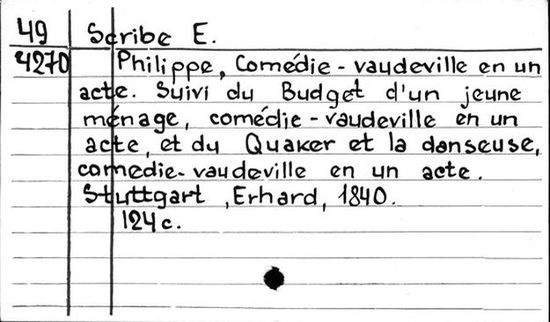 49 Scribe E.
4270 Philippe, Comédie-vaudeville en un
acte. Suivi du Budget d'un jeune
ménage, comédie-vaudeville en un
acte, et du Quaker et la danseuse,
comedie-vaudeville en un acte.
Stuttgart, Erhard, 1840.
124 c.